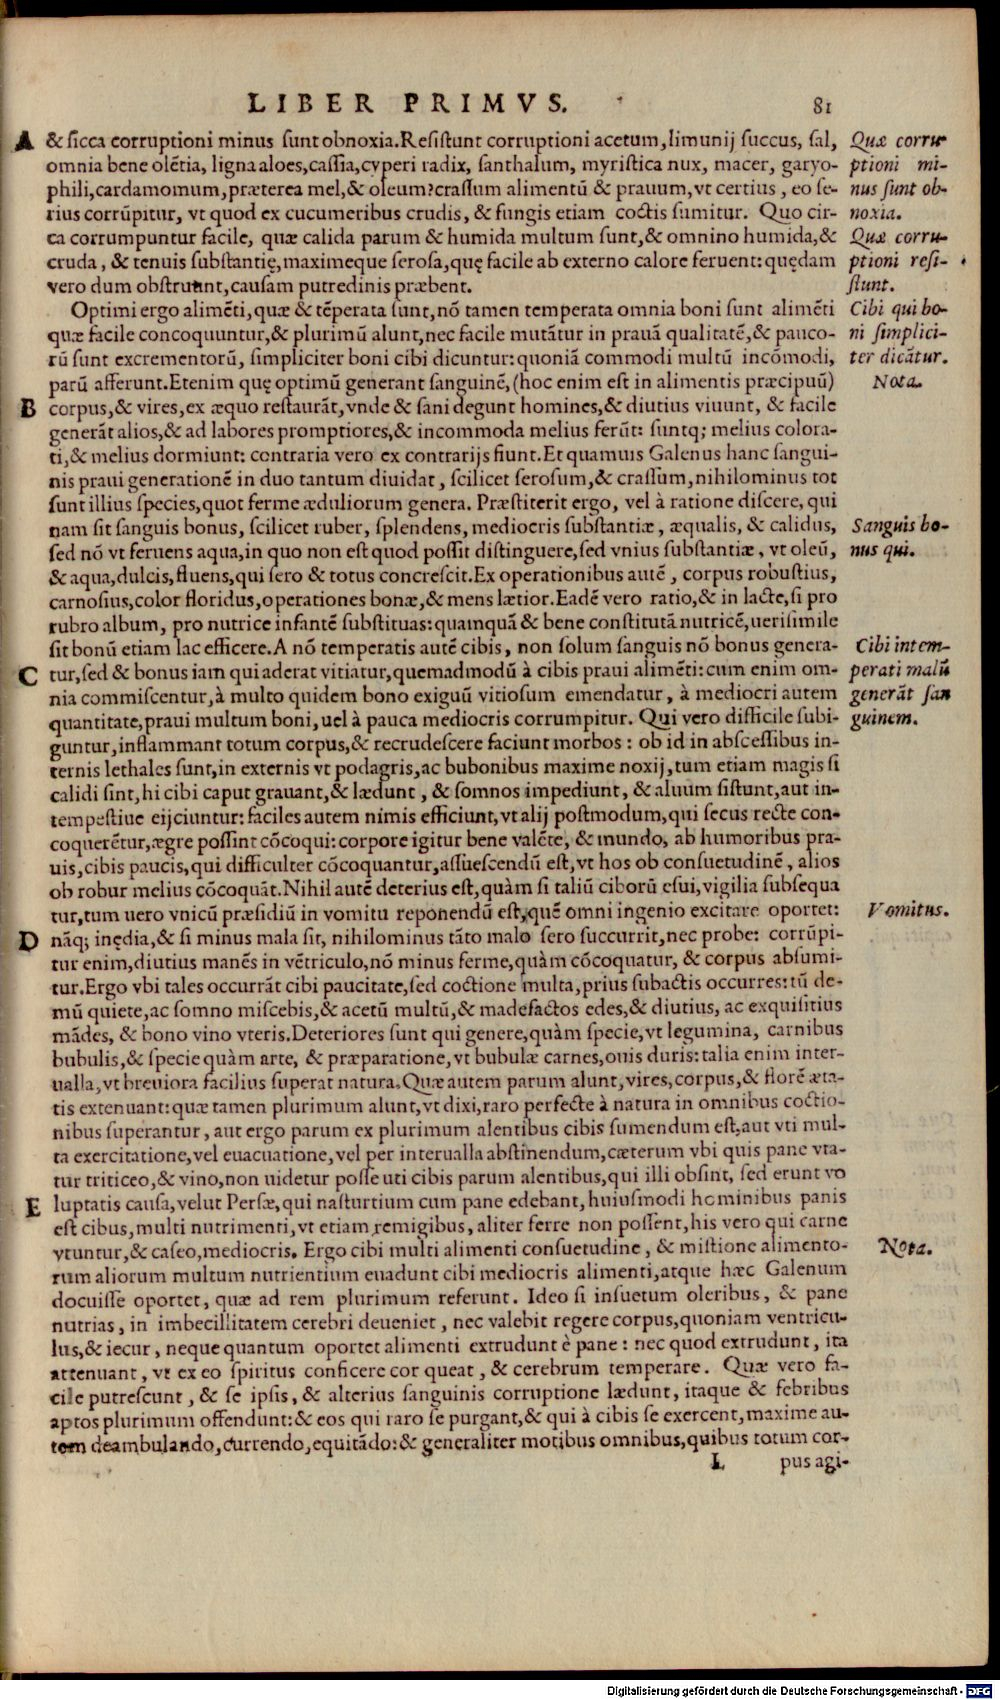 LIBER PRIMVS. 81
A & sicca corruptioni minus sunt obnoxia. Resistunt corruptioni acetum, limunij succus, sal,
omnia bene olẽtia, ligna aloes, cassia, cyperi radix, santhalum, myristica nux, macer, garyo-
phili, cardamomum, præterea mel, & oleum? crassum alimentũ & prauum, vt certius, eo se-
rius corrũpitur, vt quod ex cucumeribus crudis, & fungis etiam coctis sumitur. Quo cir-
ca corrumpuntur facile, quæ calida parum & humida multum sunt, & omnino humida, &
cruda, & tenuis substantię, maximeque serosa, quę facile ab externo calore feruent: quędam
vero dum obstruunt, causam putredinis præbent.
Quæ corru-
ptioni mi-
nus sunt ob-
noxia.
Quæ corru-
ptioni resi-
stunt.
Optimi ergo alimẽti, quæ & tẽperata sunt, nõ tamen temperata omnia boni sunt alimẽti
quæ facile concoquuntur, & plurimũ alunt, nec facile mutãtur in prauã qualitatẽ, & pauco-
rũ sunt excrementorũ, simpliciter boni cibi dicuntur: quoniã commodi multũ incõmodi,
parũ afferunt. Etenim quę optimũ generant sanguinẽ, (hoc enim est in alimentis præcipuũ)
B corpus, & vires, ex æquo restaurãt, vnde & sani degunt homines, & diutius viuunt, & facile
generãt alios, & ad labores promptiores, & incommoda melius ferũt: suntq; melius colora-
ti, & melius dormiunt: contraria vero ex contrarijs fiunt. Et quamuis Galenus hanc sangui-
nis praui generationẽ in duo tantum diuidat, scilicet serosum, & crassum, nihilominus tot
sunt illius species, quot ferme æduliorum genera. Præstiterit ergo, vel à ratione discere, qui
nam sit sanguis bonus, scilicet ruber, splendens, mediocris substantiæ, æqualis, & calidus,
sed nõ vt feruens aqua, in quo non est quod possit distinguere, sed vnius substantiæ, vt oleũ,
& aqua, dulcis, fluens, qui sero & totus concrescit. Ex operationibus autẽ, corpus robustius,
carnosius, color floridus, operationes bonæ, & mens lætior. Eadẽ vero ratio, & in lacte, si pro
rubro album, pro nutrice infantẽ substituas: quamquã & bene constitutã nutricẽ, uerisimile
sit bonũ etiam lac efficere. A nõ temperatis autẽ cibis, non solum sanguis nõ bonus genera-
C tur, sed & bonus iam qui aderat vitiatur, quemadmodũ à cibis praui alimẽti: cum enim om-
nia commiscentur, à multo quidem bono exiguũ vitiosum emendatur, à mediocri autem
quantitate, praui multum boni, uel à pauca mediocris corrumpitur. Qui vero difficile subi-
guntur, inflammant totum corpus, & recrudescere faciunt morbos: ob id in abscessibus in-
ternis lethales sunt, in externis vt podagris, ac bubonibus maxime noxij, tum etiam magis si
calidi sint, hi cibi caput grauant, & lædunt, & somnos impediunt, & aluum sistunt, aut in-
tempestiue eijciuntur: faciles autem nimis efficiunt, vt alij postmodum, qui secus recte con-
coquerẽtur, ægre possint cõcoqui: corpore igitur bene valẽte, & mundo, ab humoribus pra-
uis, cibis paucis, qui difficulter cõcoquantur, assuescendũ est, vt hos ob consuetudinẽ, alios
ob robur melius cõcoquãt. Nihil autẽ deterius est, quàm si taliũ ciborũ esui, vigilia subsequa
tur, tum uero vnicũ præsidiũ in vomitu reponendũ est, quẽ omni ingenio excitare oportet:
D nãq; inędia, & si minus mala sit, nihilominus tãto malo sero succurrit, nec probe: corrũpi-
tur enim, diutius manẽs in vẽtriculo, nõ minus ferme, quàm cõcoquatur, & corpus absumi-
tur. Ergo vbi tales occurrãt cibi paucitate, sed coctione multa, prius subactis occurres: tũ de-
mũ quiete, ac somno miscebis, & acetũ multũ, & madefactos edes, & diutius, ac exquisitius
mãdes, & bono vino vteris. Deteriores sunt qui genere, quàm specie, vt legumina, carnibus
bubulis, & specie quàm arte, & præparatione, vt bubulæ carnes, ouis duris: talia enim inter-
ualla, vt breuiora facilius superat natura. Quæ autem parum alunt, vires, corpus, & florẽ æta-
tis extenuant: quæ tamen plurimum alunt, vt dixi, raro perfecte à natura in omnibus coctio-
nibus superantur, aut ergo parum ex plurimum alentibus cibis sumendum est, aut vti mul-
ta exercitatione, vel euacuatione, vel per interualla abstinendum, cæterum vbi quis pane vta-
tur triticeo, & vino, non uidetur posse uti cibis parum alentibus, qui illi obsint, sed erunt vo
E luptatis causa, velut Persæ, qui nasturtium cum pane edebant, huiusmodi hominibus panis
est cibus, multi nutrimenti, vt etiam remigibus, aliter ferre non possent, his vero qui carne
vtuntur, & caseo, mediocris. Ergo cibi multi alimenti consuetudine, & mistione alimento-
rum aliorum multum nutrientium euadunt cibi mediocris alimenti, atque hæc Galenum
docuisse oportet, quæ ad rem plurimum referunt. Ideo si insuetum oleribus, & pane
nutrias, in imbecillitatem cerebri deueniet, nec valebit regere corpus, quoniam ventricu-
lus, & iecur, neque quantum oportet alimenti extrudunt è pane: nec quod extrudunt, ita
attenuant, vt ex eo spiritus conficere cor queat, & cerebrum temperare. Quæ vero fa-
cile putrescunt, & se ipsis, & alterius sanguinis corruptione lædunt, itaque & febribus
aptos plurimum offendunt: & eos qui raro se purgant, & qui à cibis se exercent, maxime au-
tem deambulando, currendo, equitãdo: & generaliter motibus omnibus, quibus totum cor-
L pus agi-
Cibi qui bo-
ni simplici-
ter dicãtur.
Nota.
Sanguis bo-
nus qui.
Cibi intem-
perati malũ
generãt san
guinem.
Vomitus.
Nota.
Digitalisierung gefördert durch die Deutsche Forschungsgemeinschaft - DFG